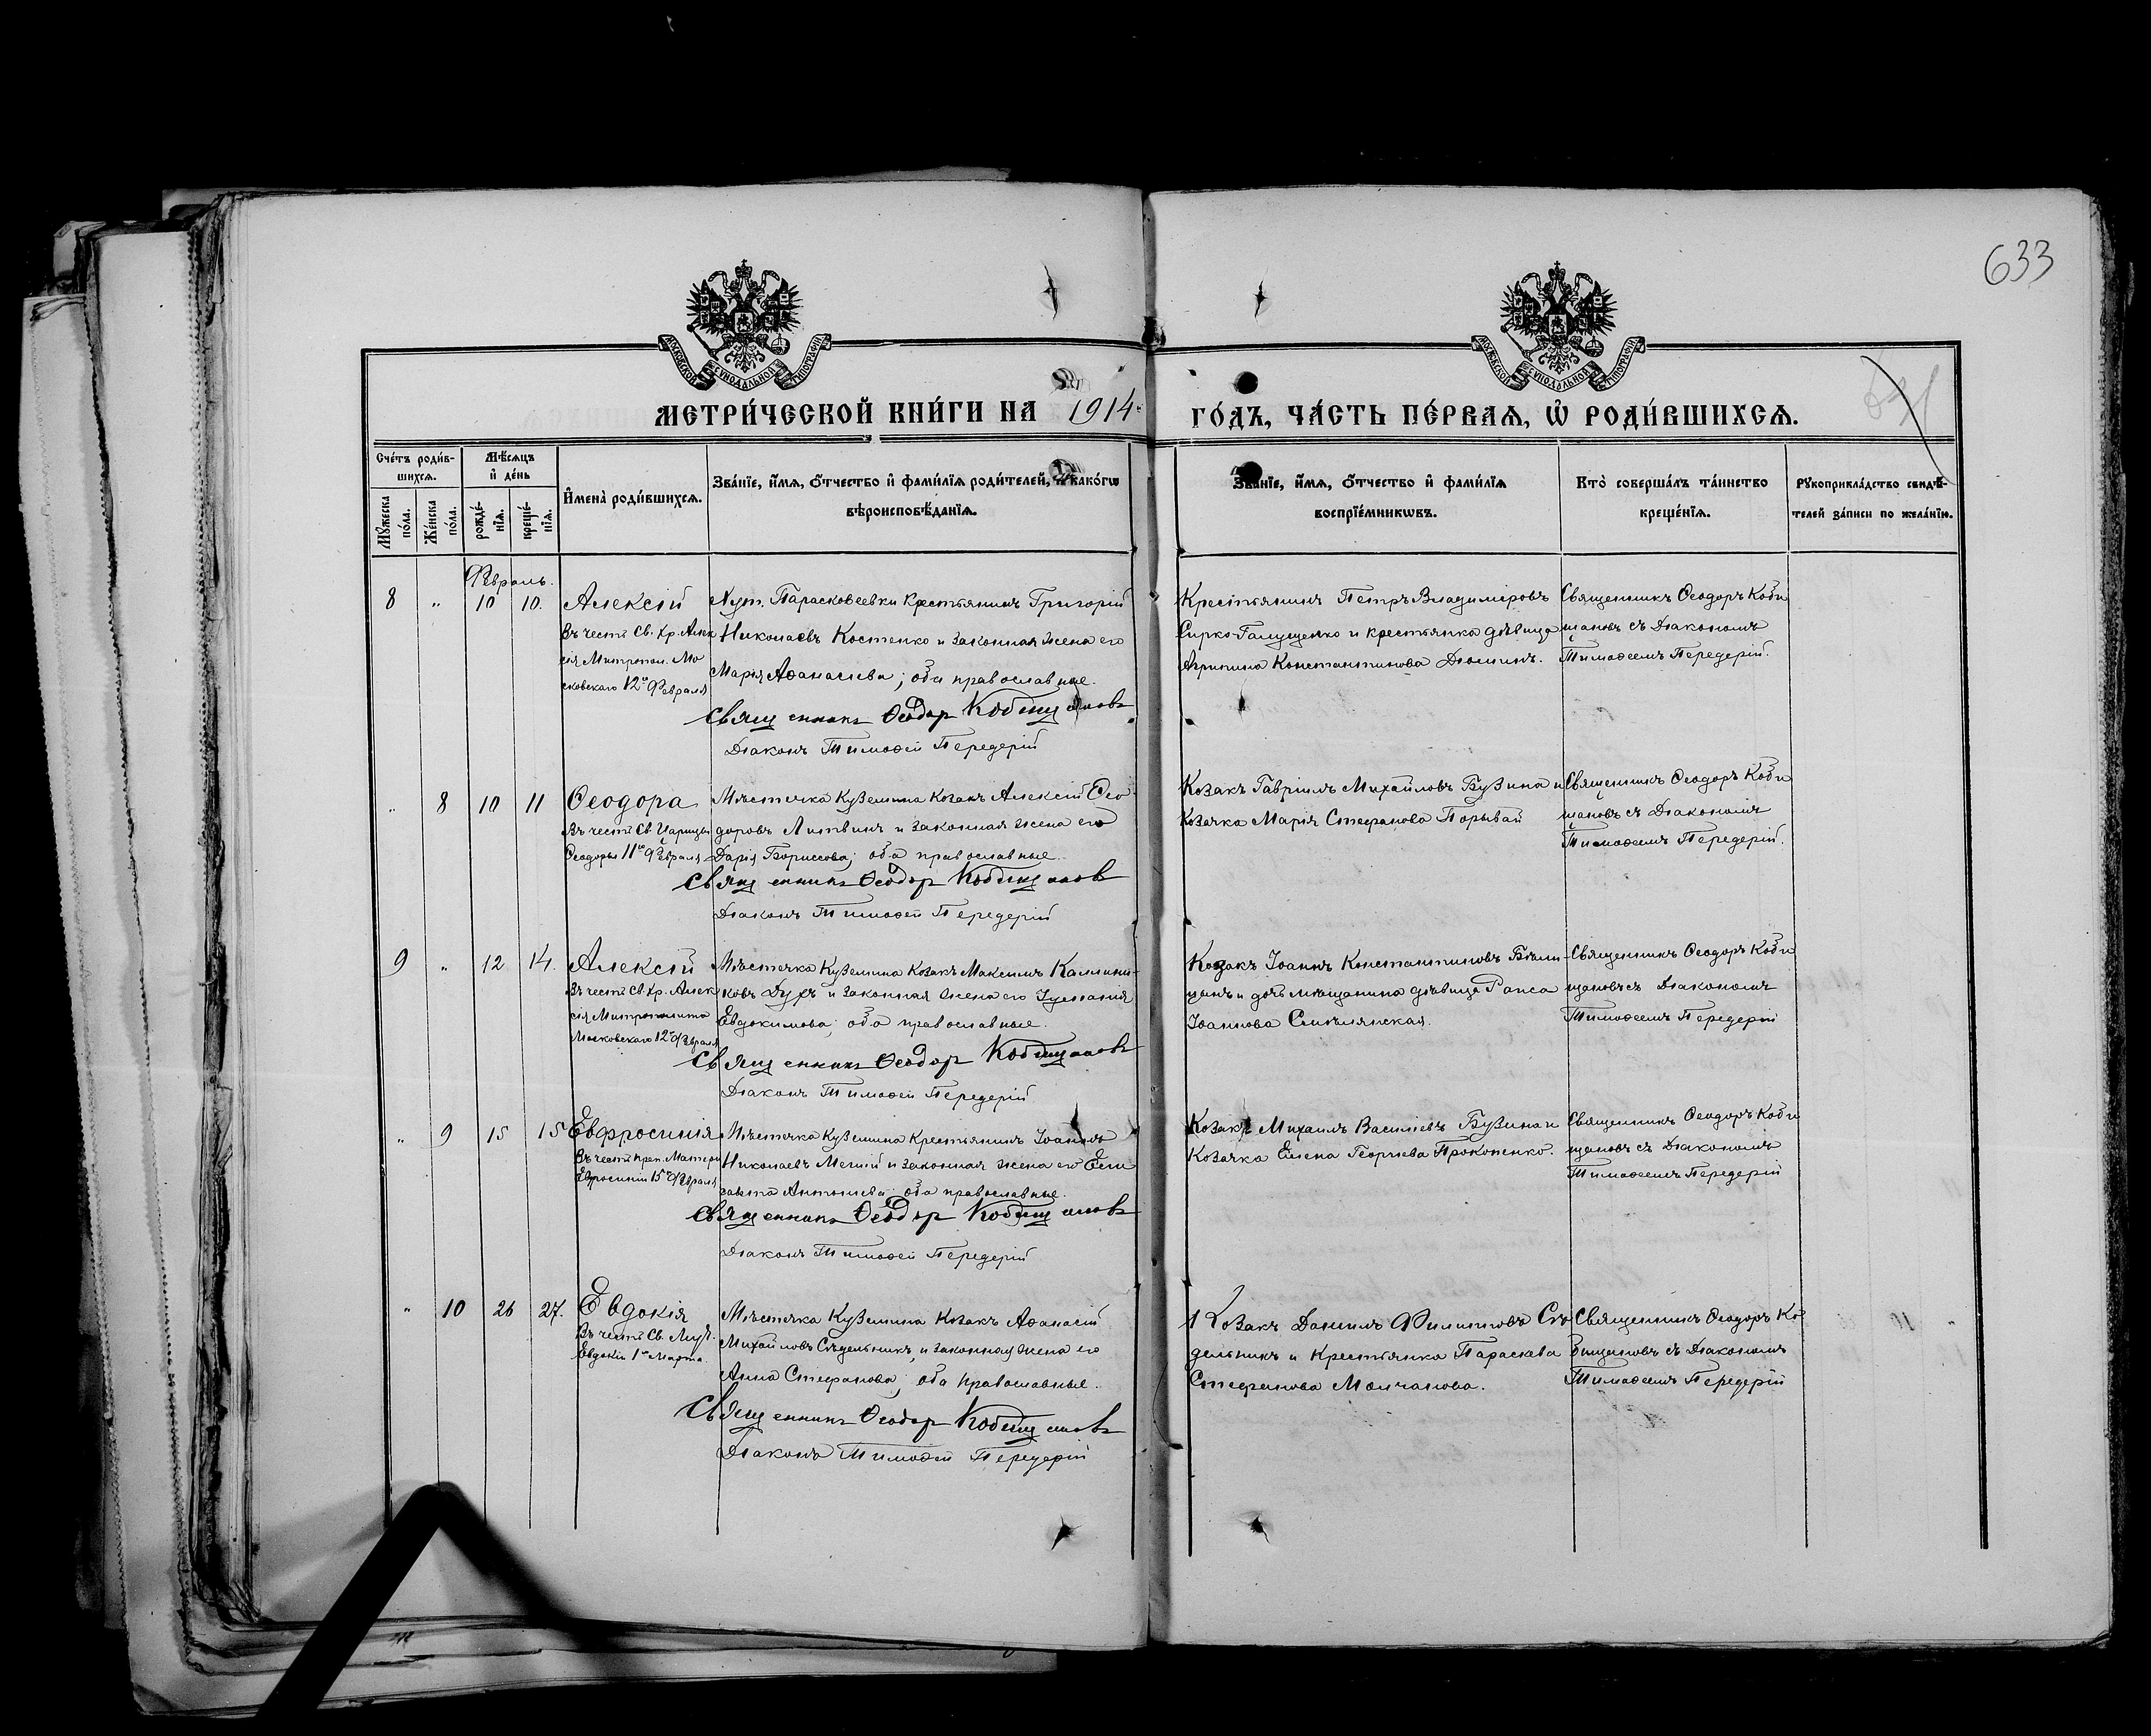 633
МОСКОВСКОЙ СУНОДАЛЬНОЙ ТИПОГРАФІИ
МОСКОВСКОЙ СУНОДАЛЬНОЙ ТИПОГРАФІИ
МЕТРИ́ЧЕСКОЙ КНИ́ГИ НА 1914
ГО́ДЪ, ЧА́СТЬ ПЕ́РВАѦ, Ѡ҆ РОДИ́ВШИХСѦ.
Сче́тъ роди́в-
шихсѧ.
Мꙋ́жеска по́ла.
Же́нска по́ла.
Мѣ́сѧцъ
и҆ де́нь
рожде́-
нїѧ.
креще́-
нїѧ.
И҆мена̀ роди́вшихсѧ.
Зва́нїе, и҆́мѧ, ѻ҆́тчество и҆ фами́лїѧ роди́телей, и҆ како́гѡ
вѣроисповѣ́данїѧ.
Зва́нїе, и҆́мѧ, ѻ҆́тчество и҆ фами́лїѧ
воспрїе́мникѡвъ.
Кто̀ соверша́лъ та́инство
креще́нїѧ.
Рꙋкоприкла́дство свидѣ́-
телей за́писи по жела́нїю.
Февраль.
8 " 10 10.
Алексій
Въ честь Св. Хр. Алек
сія Митропол. Мо
сковскаго 12го Февраля
Хут. Парасковеевки Крестьянинъ Григорій
Николаевъ Костенко и законная жена его
Марія Аѳанасіева; оба православные.
Священникъ Ѳеодор Кобищановъ
Діаконъ Тимоѳей Передерій
Крестьянинъ Петръ Владиміровъ
Сирко-Галущенко и крестьянка дѣвица
Агрипина Константинова
Священникъ Ѳеодоръ Коби
щановъ съ Діакономъ
Тимоѳеемъ Передерій.
" 8 10 11
Ѳеодора
Въ честь Св Царицы
Ѳеодоры 11го Февраля
Мѣстечка Куземина Козакъ Алексій Ѳео
доровъ Литвинъ и законная жена его
Дарія Борисова; оба православные.
Священникъ Ѳеодор Кобищанов
Діаконъ Тимоѳей Передерій
Козакъ Гавріилъ Михайловъ Бузина и
Козачка Марія Стефанова Порывай
Священникъ Ѳеодоръ Коби
щановъ съ Діакономъ
Тимоѳеемъ Передерій.
9 " 12 14.
Алексій
Въ честь Св Хр. Алек
сія Митрополита
Московскаго 12го Февраля
Мѣстечка Куземина Козакъ Максимъ Каллини-
ковъ Духъ и законная жена его Іуліанія
Евдокимова; оба православные.
Священникъ Ѳеодор Кобищановъ
Діаконъ Тимоѳей Передерій
Козакъ Іоаннъ Константиновъ
и дочь мѣщанина дѣвица Раиса
Іоаннова Смѣлянская.
Священникъ Ѳеодоръ Коби
щановъ съ Діакономъ
Тимоѳеемъ Передерій
" 9 15 15
Евфросинія
Въ честь преп. Матери
Евфросиніи 15го Февраля
Мѣстечка Куземина Крестьянинъ Іоаннъ
Николаевъ и законная жена его Ели
савета Антоніева; оба православные.
Священникъ Ѳеодор Кобищановъ
Діаконъ Тимоѳей Передерій
Козакъ Михаилъ Василіевъ Бузина и
Козачка Елена Георгіева Прокопенко.
Священникъ Ѳеодоръ Коби
щановъ съ Діакономъ
Тимоѳеемъ Передерій
" 10 26 27.
Евдокія
Въ честь Св. Муч.
Евдокіи 1го Марта.
Мѣстечка Куземина Козакъ Аѳанасій
Михайловъ Сѣдельникъ и законная жена его
Анна Стефанова; оба православные.
Священникъ Ѳеодор Кобищановъ
Діаконъ Тимоѳей Передерій
Козакъ Даніилъ Филипповъ Сѣ
дельникъ и Крестьянка Параскева
Стефанова Молчанова.
Священникъ Ѳеодоръ Ко
бищановъ съ Діакономъ
Тимоѳеемъ Передерій